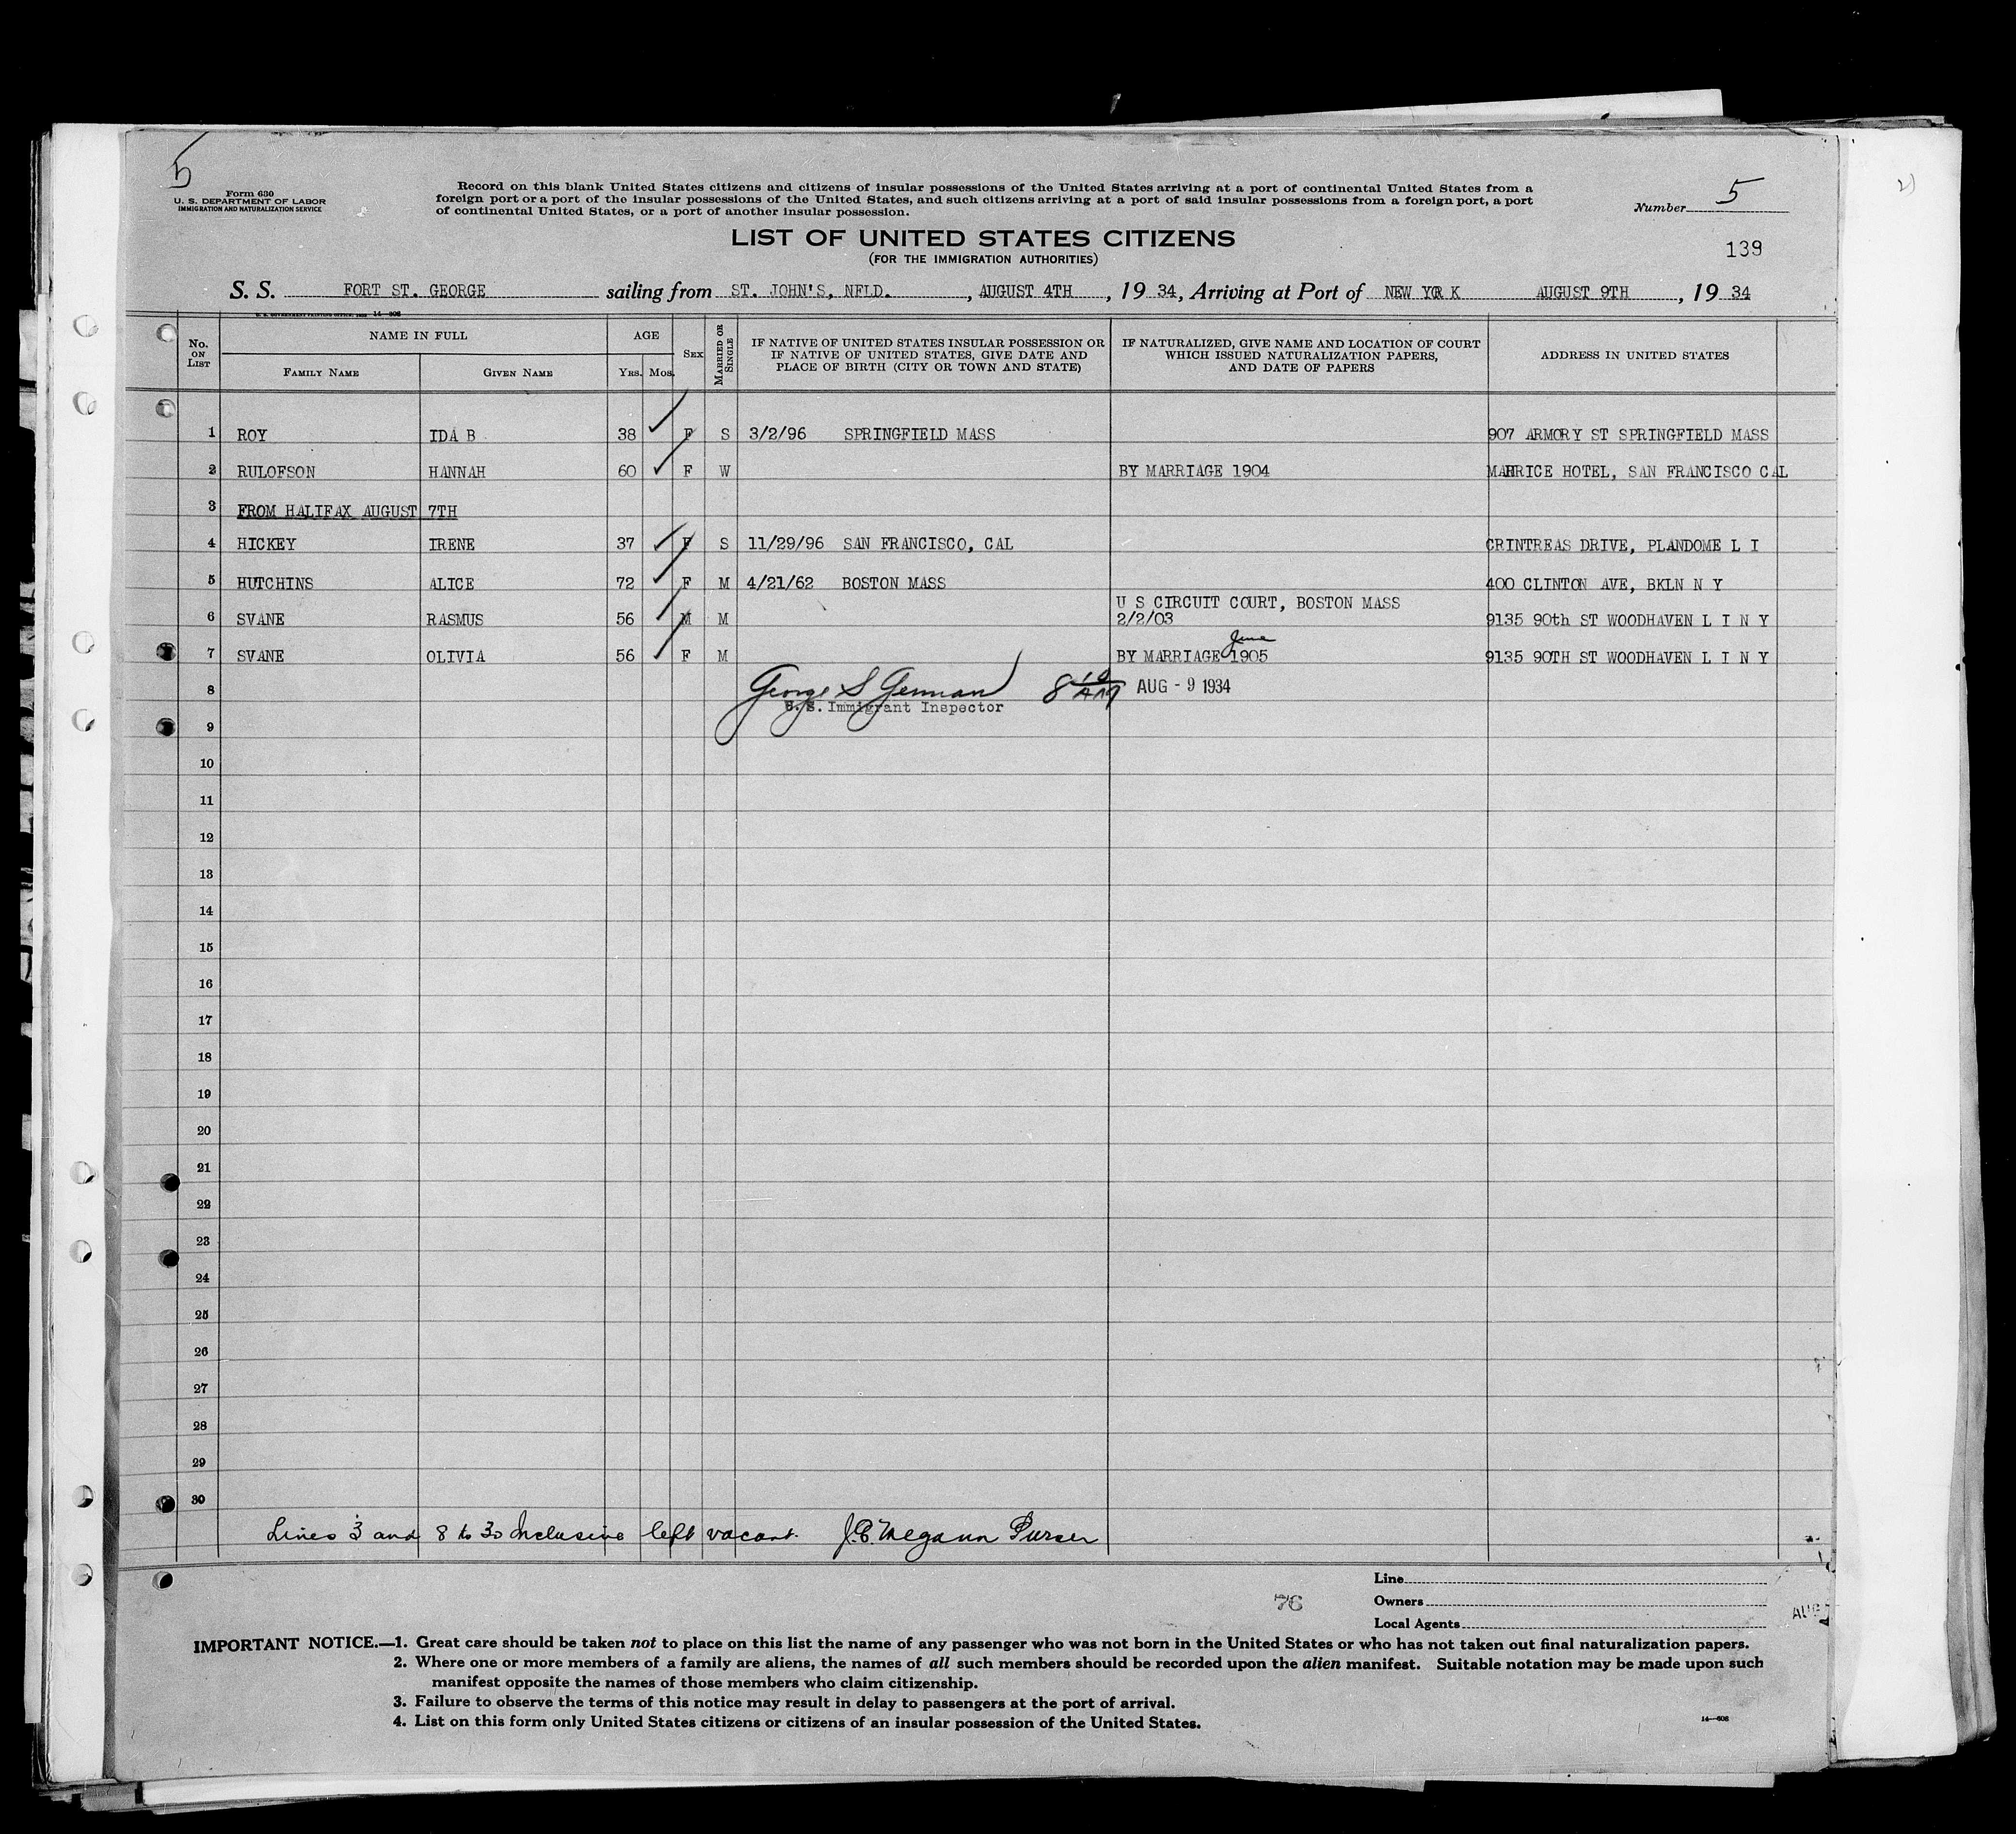 5
Form 630
U. S. DEPARTMENT OF LABOR
IMMIGRATION AND NATURALIZATION SERVICE
Record on this blank United States citizens and citizens of insular possessions of the United States arriving at a port of continental United States from a
foreign port or a port of the insular possessions of the United States, and such citizens arriving at a port of said insular possessions from a foreign port, a port
of continental United States, or a port of another insular possession.
Number 5
LIST OF UNITED STATES CITIZENS
(FOR THE IMMIGRATION AUTHORITIES)
139
S. S. FORT ST. GEORGE sailing from ST. JOHN'S, NFLD. , AUGUST 4TH , 19 34, Arriving at Port of NEW YORK AUGUST 9TH , 19 34
U. S. GOVERNMENT PRINTING OFFICE: 14—608
No. ON LIST NAME IN FULL AGE SEX MARRIED OR SINGLE IF NATIVE OF UNITED STATES INSULAR POSSESSION OR IF NATIVE OF UNITED STATES, GIVE DATE AND PLACE OF BIRTH (CITY OR TOWN AND STATE) IF NATURALIZED, GIVE NAME AND LOCATION OF COURT WHICH ISSUED NATURALIZATION PAPERS, AND DATE OF PAPERS ADDRESS IN UNITED STATES
FAMILY NAME GIVEN NAME YRS. MOS.
1 ROY IDA B 38 F S 3/2/96 SPRINGFIELD MASS 907 ARMORY ST SPRINGFIELD MASS
2 RULOFSON HANNAH 60 F W BY MARRIAGE 1904 HOTEL, SAN FRANCISCO CAL
3 FROM HALIFAX AUGUST 7TH
4 HICKEY IRENE 37 F S 11/29/96 SAN FRANCISCO, CAL CRINTREAS DRIVE, PLANDOME L I
5 HUTCHINS ALICE 72 F M 4/21/62 BOSTON MASS 400 CLINTON AVE, BKLN N Y
U S CIRCUIT COURT, BOSTON MASS
6 SVANE RASMUS 56 M M 2/2/03 9135 90th ST WOODHAVEN L I N Y
June
7 SVANE OLIVIA 56 F M BY MARRIAGE 1905 9135 90TH ST WOODHAVEN L I N Y
8 George S German 8 10 AM AUG - 9 1934
U. S. Immigrant Inspector
9
10
11
12
13
14
15
16
17
18
19
20
21
22
23
24
25
26
27
28
29
30
Lines 3 and 8 to 30 Inclusive left vacant. Purser
Line
76 Owners
Local Agents
AUG
IMPORTANT NOTICE.—1. Great care should be taken not to place on this list the name of any passenger who was not born in the United States or who has not taken out final naturalization papers.
2. Where one or more members of a family are aliens, the names of all such members should be recorded upon the alien manifest. Suitable notation may be made upon such
manifest opposite the names of those members who claim citizenship.
3. Failure to observe the terms of this notice may result in delay to passengers at the port of arrival.
4. List on this form only United States citizens or citizens of an insular possession of the United States.
14—608